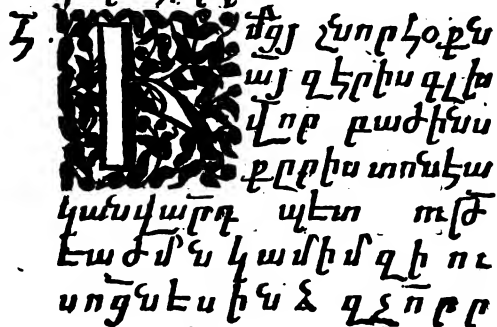 Հ
Իմցյ շնորհօքն
այ զէրիս գլխ
վոր բաժինս
տոնէա
կանվարդ պետ ութ
եաժմն կամիմ զի ու
սոցնես ինձ զչորր